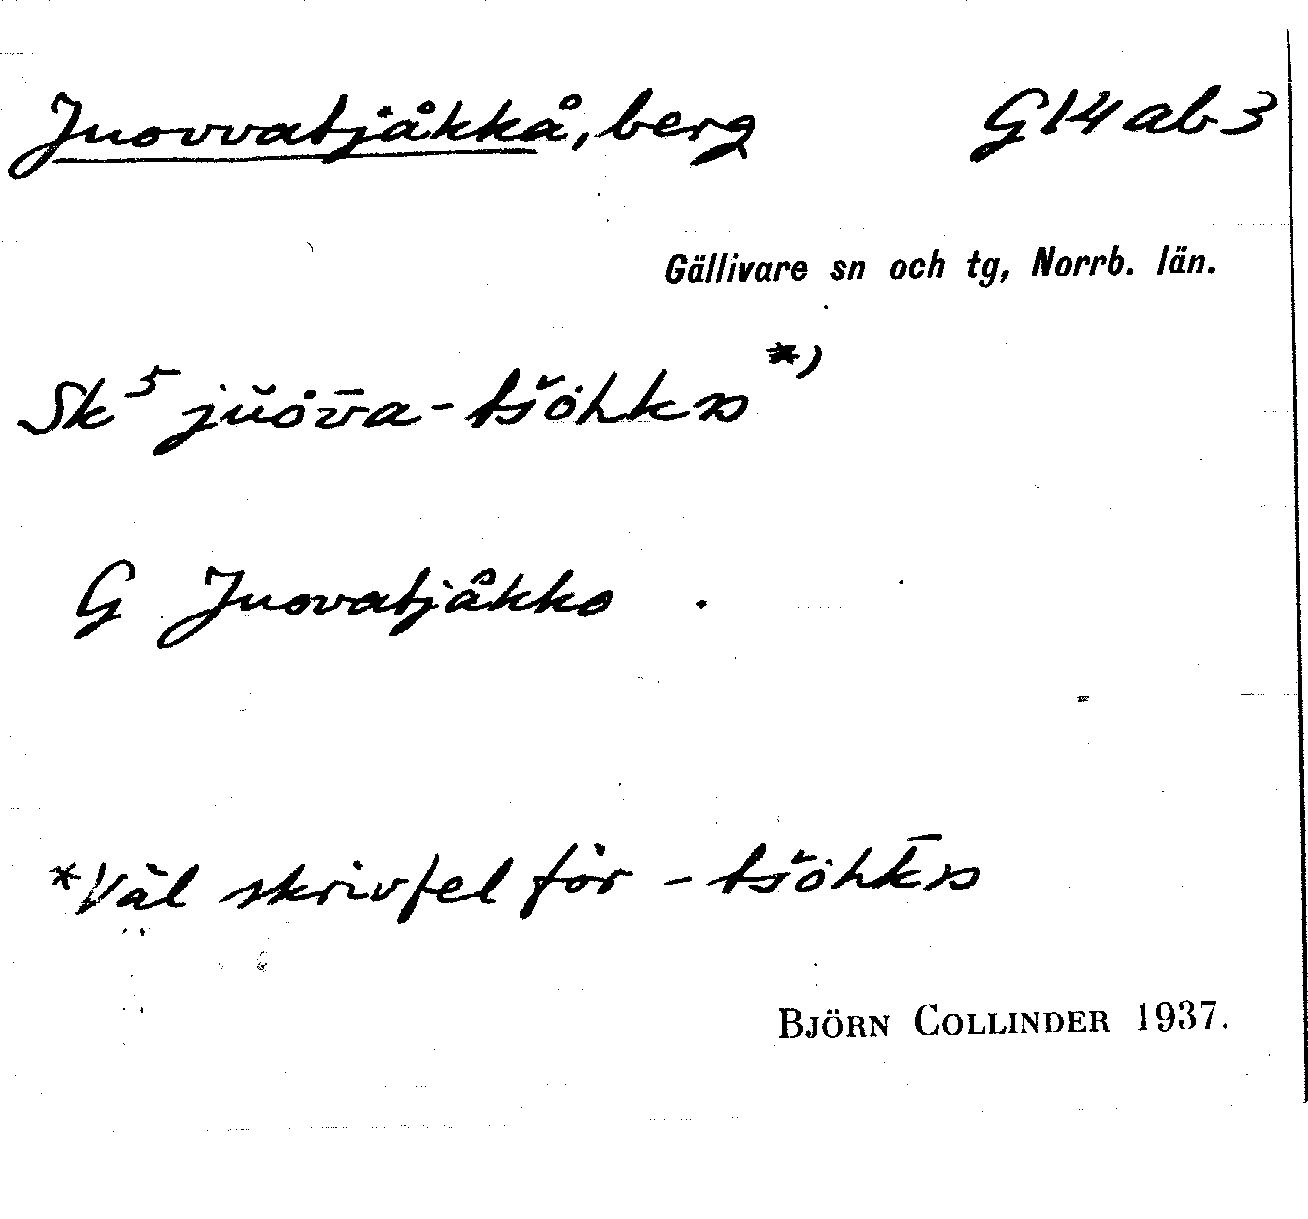 Juovvatjåkkå, berg G14ab3
Gällivare sn och tg, Norrb. län.
Sk5 jŭȯv̄a-tšȯhkɷ *)
G Juovatjåkko .
*Väl skrivfel för -tšȯhk̄ɷ
BJÖRN COLLINDER 1937.